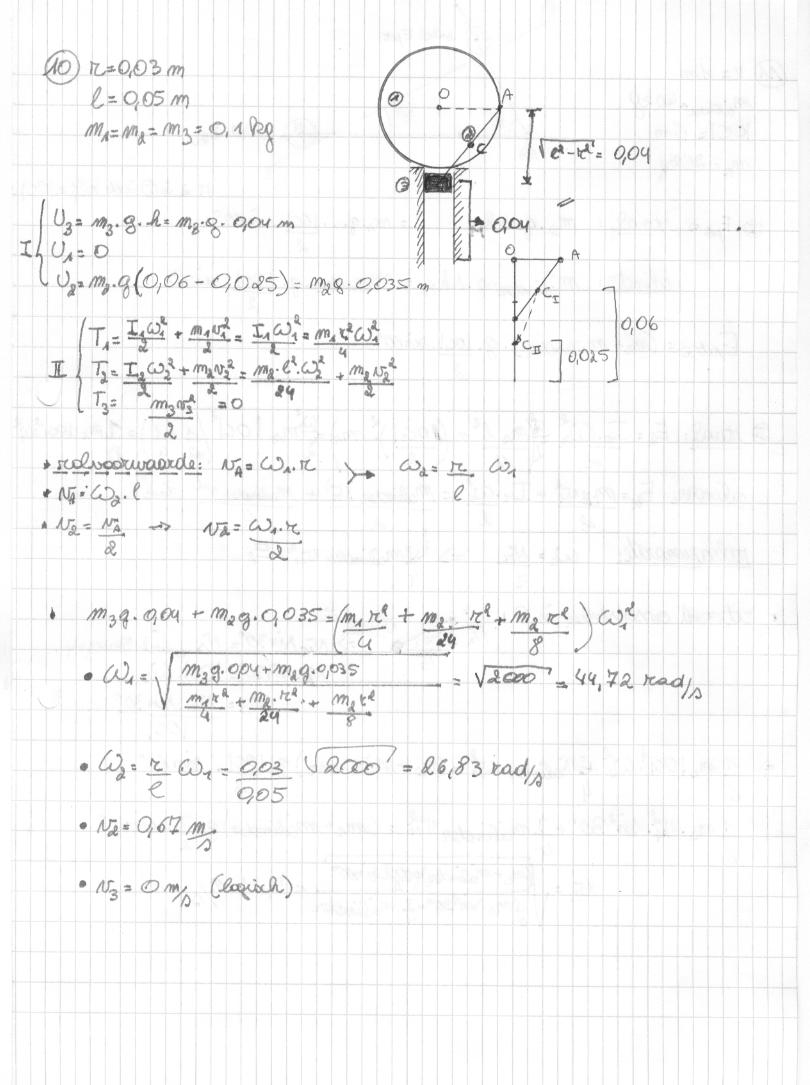 10 r = 0,03 m
l = 0,05 m
m₁ = m₂ = m₃ = 0,1 kg
O A
① ② C
③
√(l² - r²) = 0,04
0,04
I { U₃ = m₃·g·h = m₃·g·0,04 m
U₁ = 0
U₂ = m₂·g(0,06 - 0,025) = m₂g·0,035 m
O A
C_I
C_II
0,06
0,025
II { T₁ = I₁ω₁²/2 + m₁v₁²/2 = I₁ω₁²/2 = m₁r²ω₁²/4
T₂ = I₂ω₂²/2 + m₂v₂²/2 = m₂·l²·ω₂²/24 + m₂v₂²/2
T₃ = m₃v₃²/2 = 0
* rolvoorwaarde: v_A = ω₁·r → ω₂ = r/l ω₁
* v_A = ω₂·l
• v₂ = v_A/2 → v₂ = ω₁·r/2
• m₃g·0,04 + m₂g·0,035 = (m₁r²/4 + m₂ r²/24 + m₂ r²/8) ω₁²
• ω₁ = √((m₃g·0,04 + m₂g·0,035)/(m₁r²/4 + m₂·r²/24 + m₂r²/8)) = √2000 = 44,72 rad/s
• ω₂ = r/l ω₁ = 0,03/0,05 √2000 = 26,83 rad/s
• v₂ = 0,67 m/s
• v₃ = 0 m/s (logisch)